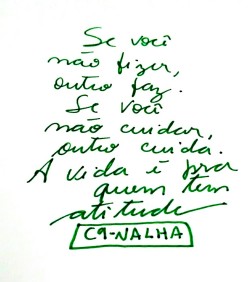 Se você
não fizer,
outro faz.
Se você
não cuidar,
outro cuida.
A vida é pra
quem tem
atitude
C9-NALHA